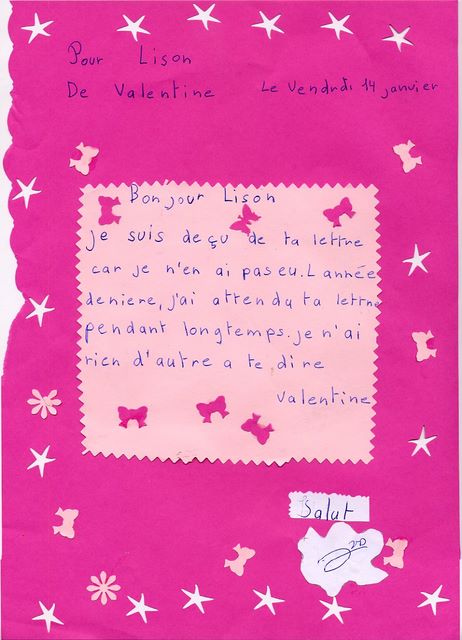 Pour Lison
De Valentine Le Vendrdi 14 janvier
Bonjour Lison
je suis deçu de ta lettre
car je n'en ai pas eu. L année
deniere, j'ai attendu ta lettre
pendant longtemps. je n'ai
rien d'autre a te dire
Valentine
Salut